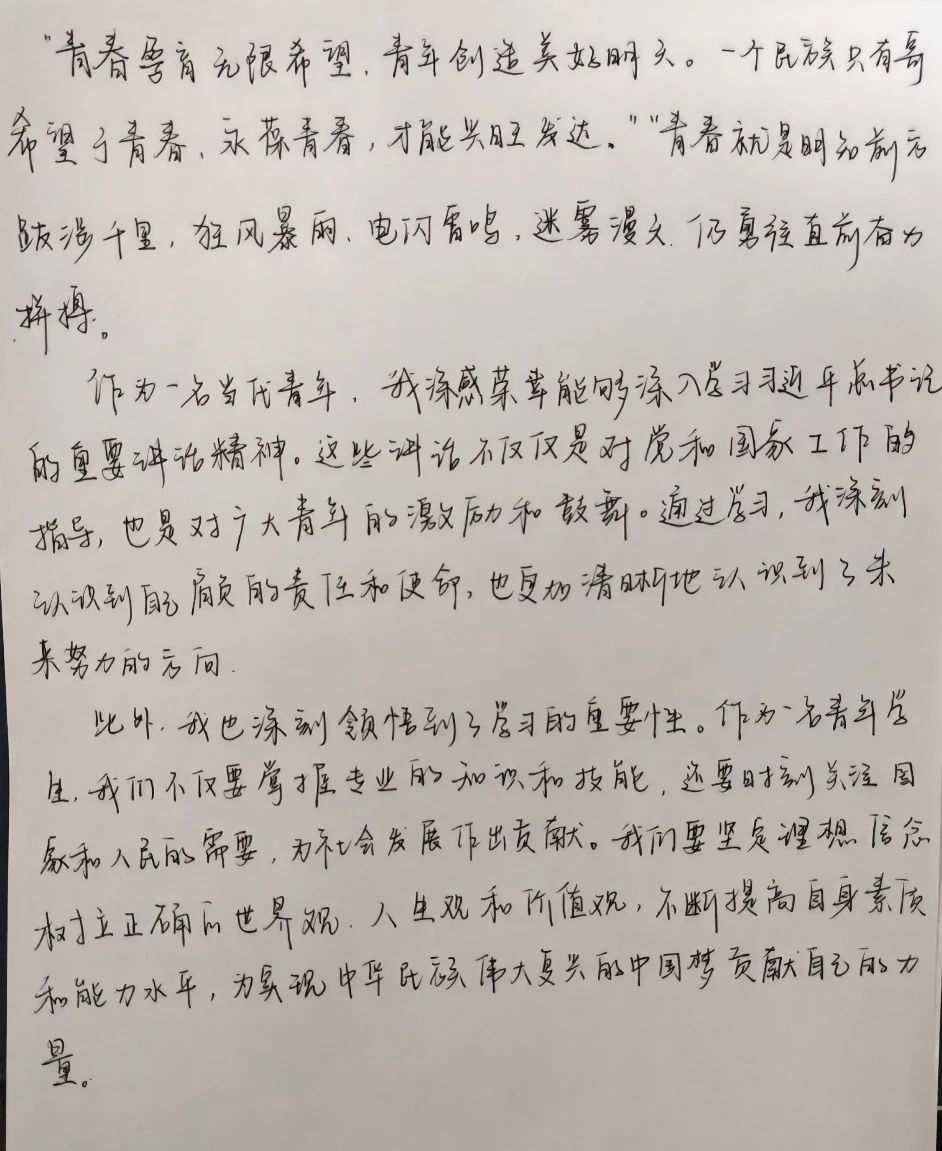 “青春孕育无限希望,青年创造美好明天。一个民族只有哥
希望于青春、永葆青春,才能兴旺发达。”“青春就是明知前方
跋涉千里,狂风暴雨、电闪雷鸣,迷雾漫天、仍勇往直前奋力
拼搏。
作为一名当代青年,我深感荣幸能够深入学习习近平总书记
的重要讲话精神。这些讲话不仅仅是对党和国家工作的
指导,也是对广大青年的激励和鼓舞。通过学习,我深刻
认识到自己肩负的责任和使命,也更加清晰地认识到了未
来努力的方向.
此外,我也深刻领悟到了学习的重要性。作为一名青年学
生,我们不仅要掌握专业的知识和技能,还要时刻关注国
家和人民的需要,为社会发展作出贡献。我们要坚定理想信念
树立正确的世界观、人生观和价值观,不断提高自身素质
和能力水平,为实现中华民族伟大复兴的中国梦贡献自己的力
量。